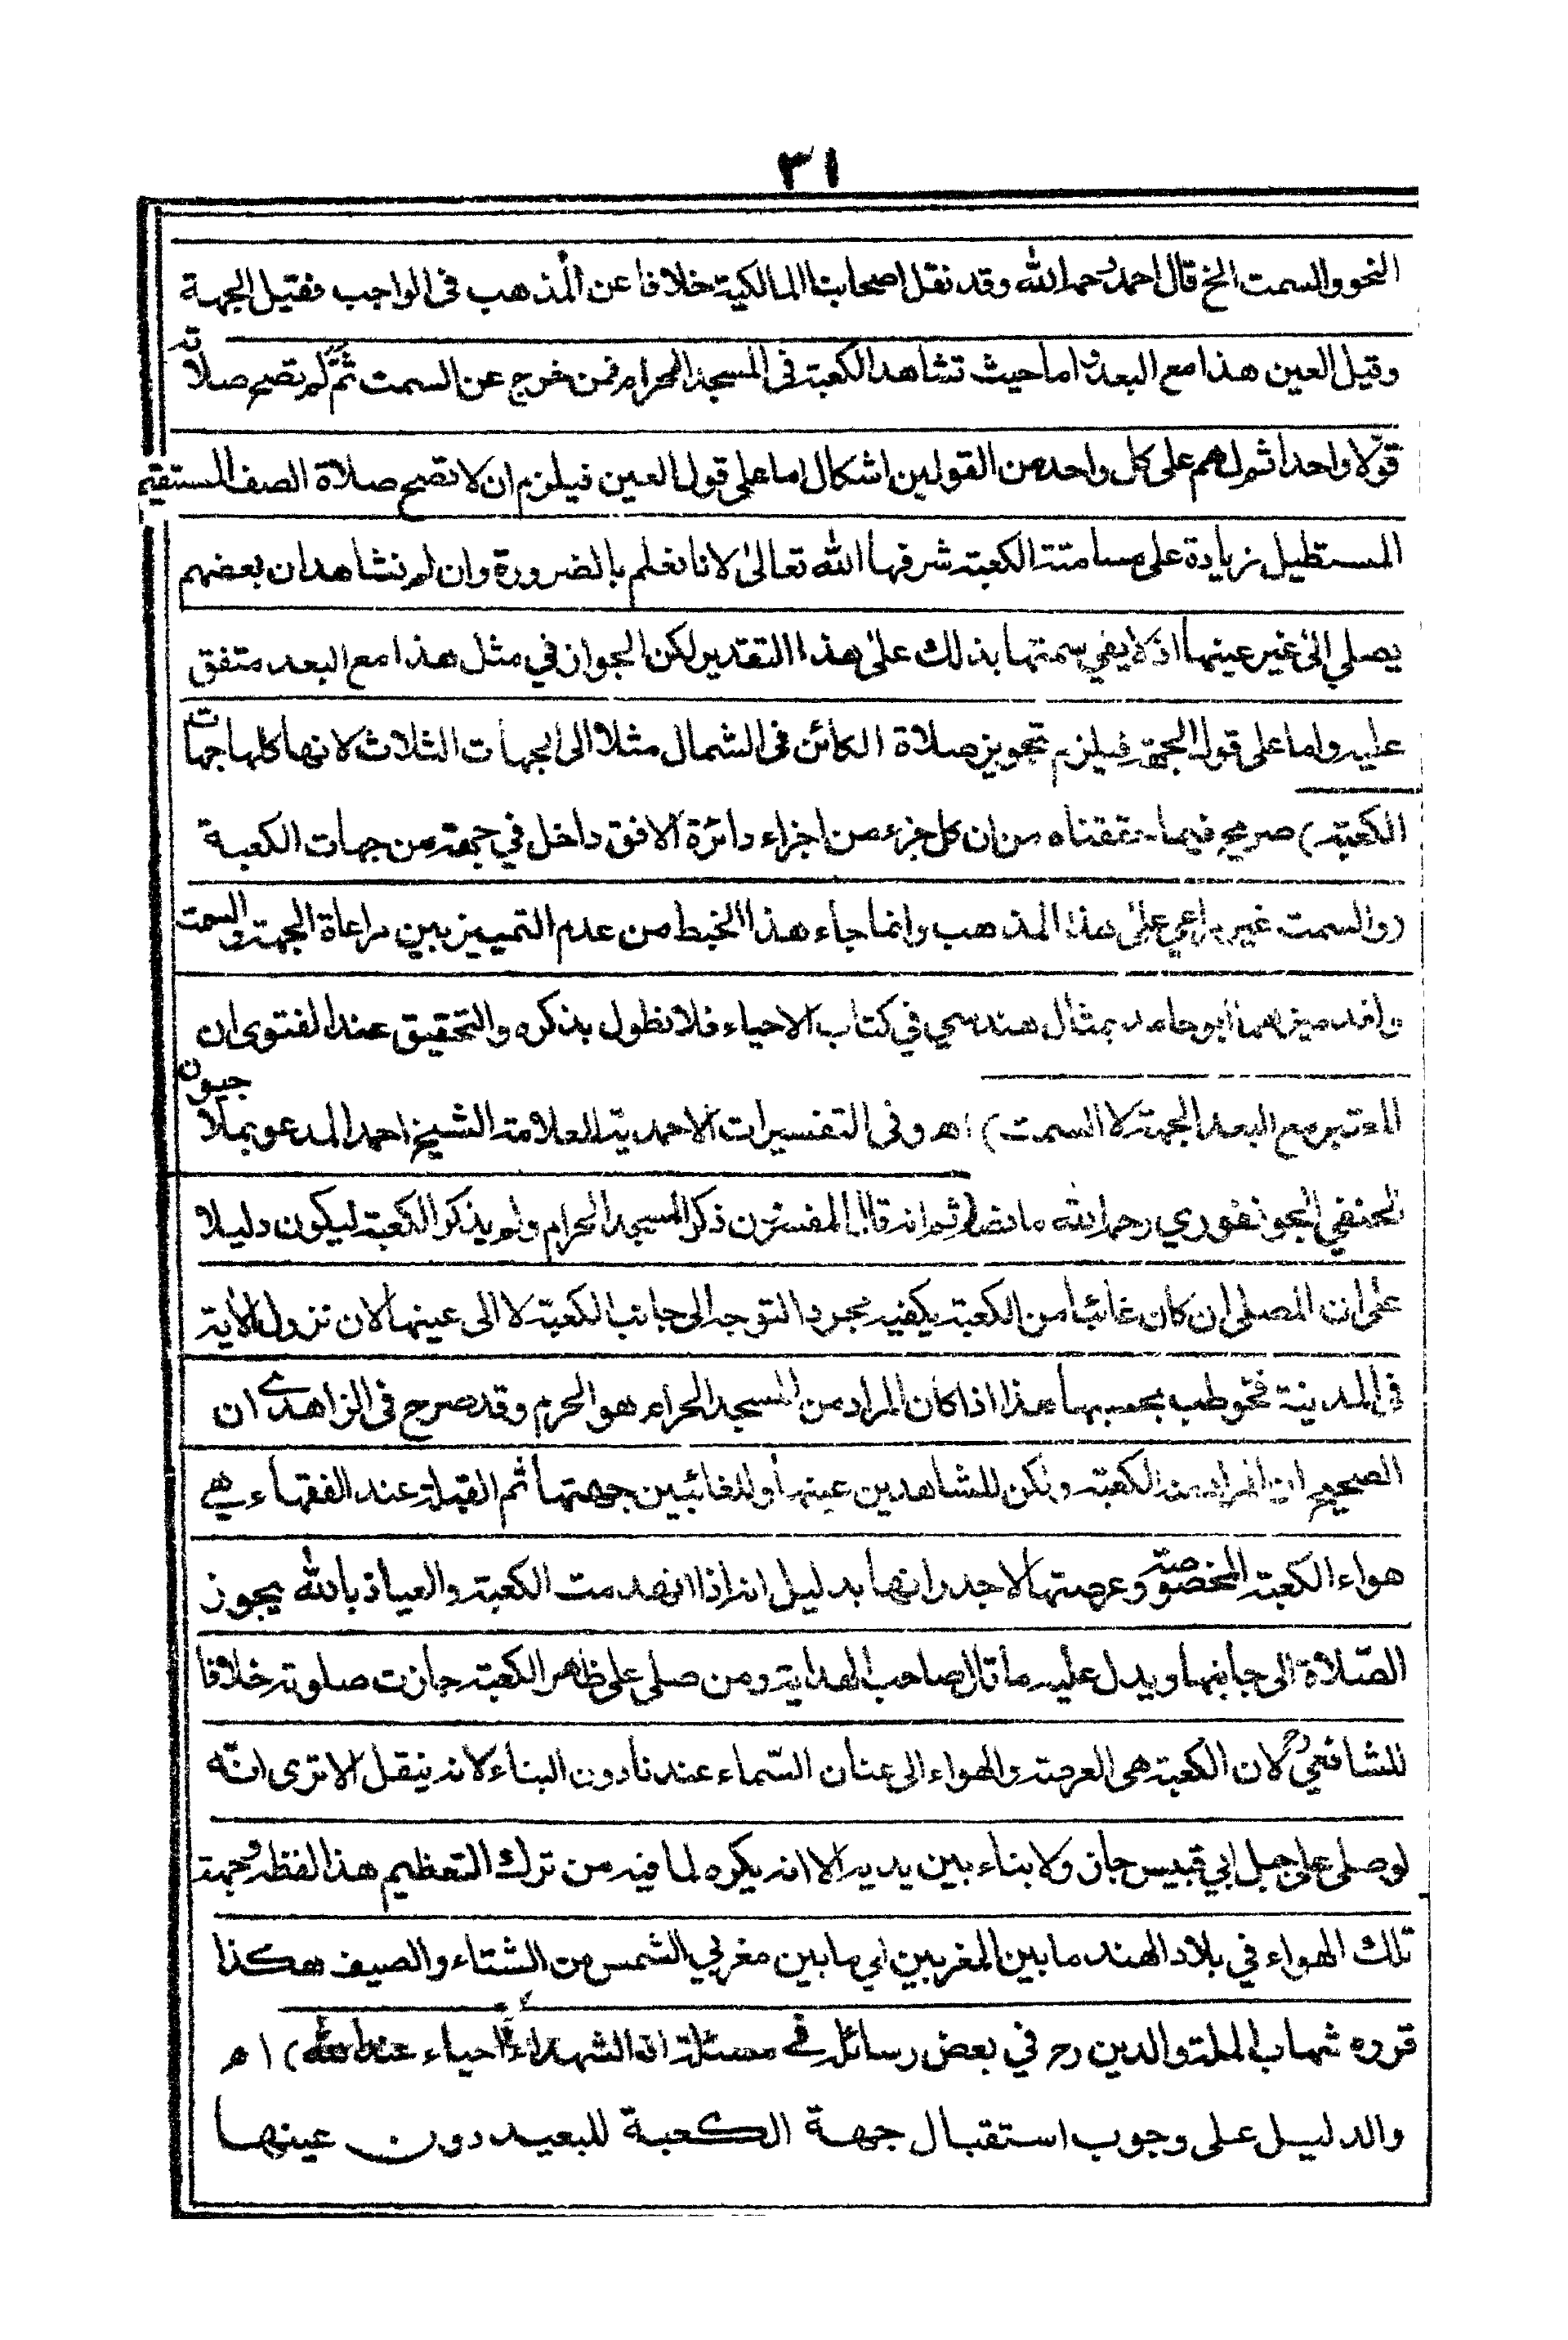 ٣١
النحو والسمت الخ قال احمد رحمه الله وقد نقل اصحابنا المالكية خلافا عن المذهب فى الواجب فقيل الجهة
وقيل العين هذا مع البعد واما حيث تشاهد الكعبة فى المسجد الحرام فمن خرج عن السمت ثَمَّ لم تصح صلاته
قولا واحدا ثم لهم على كل واحد من القولين اشكال اما على قول العين فيلزم ان لا تصح صلاة الصف المستقيم
المستطيل زيادة على مسامتة الكعبة شرفها الله تعالىٰ لانا نعلم بالضرورة وان لم نشاهد ان بعضهم
يصلي الىٰ غير عينها اذ لا يفي سمتها بذالك علىٰ هذا التقدير لكن الجواز في مثل هذا مع البعد متفق
عليه واما على قول الجهة فيلزم تجويز صلاة الكائن فى الشمال مثلا الى الجهات الثلاث لانها كلها جهات
الكعبة) صريح فيما حققناه من ان كل جزء من اجزاء دائرة الافق داخل في جهة من جهات الكعبة
(والسمت غير مراعي علىٰ هذا المذهب وانما جاء هذا الخبط من عدم التمييز بين مراعاة الجهة والسمت
وقد ميزهما ابو حامد بمثال هندسي في كتاب الاحياء فلا نطول بذكره والتحقيق عند الفتوى ان
المعتبر مع البعد الجهة لا السمت) اه وفى التفسيرات الاحمدية للعلامة الشيخ احمد المدعو بملا جيون
الحنفي الجونفوري رحمه الله ما نصه (ثم انه قال المفسرون ذكر المسجد الحرام ولم يذكر الكعبة ليكون دليلا
علىٰ ان المصلى ان كان غائبا من الكعبة يكفيه مجرد التوجه الى جانب الكعبة لا الى عينها لان نزول الآية
فى المدينة فخوطب بحسبها هذا اذا كان المراد من المسجد الحرام هو الحرم وقد صرح فى الزاهدى ان
الصحيح ان المراد منه الكعبة ولكن للشاهدين عينها وللغائبين جهتها ثم القبلة عند الفقهاء هي
هواء الكعبة المخصوصة وعرصتها لا جدرانها بدليل انه اذا انهدمت الكعبة والعياذ بالله يجوز
الصّلاة الى جانبها ويدل عليه ما قال صاحب الهداية ومن صلى على ظاهر الكعبة جازت صلوته خلافا
للشافعيؒ لان الكعبة هى العرصة والهواء الى عنان السّماء عندنا دون البناء لانه ينقل الا ترى انّه
لو صلى على جبل ابي قبيس جاز ولا بناء بين يديه الا انه يكره لما فيه من ترك التعظيم هذا لفظه وجهة
تلك الهواء في بلاد الهند ما بين المغربين اي ما بين مغربي الشمس من الشتاء والصيف هكذا
قرره شهاب الملة والدين رح في بعض رسائله في مسئلة ان الشهداء احياء عند الله) اه
والدليل على وجوب استقبال جهة الكعبة للبعيد دون عينها